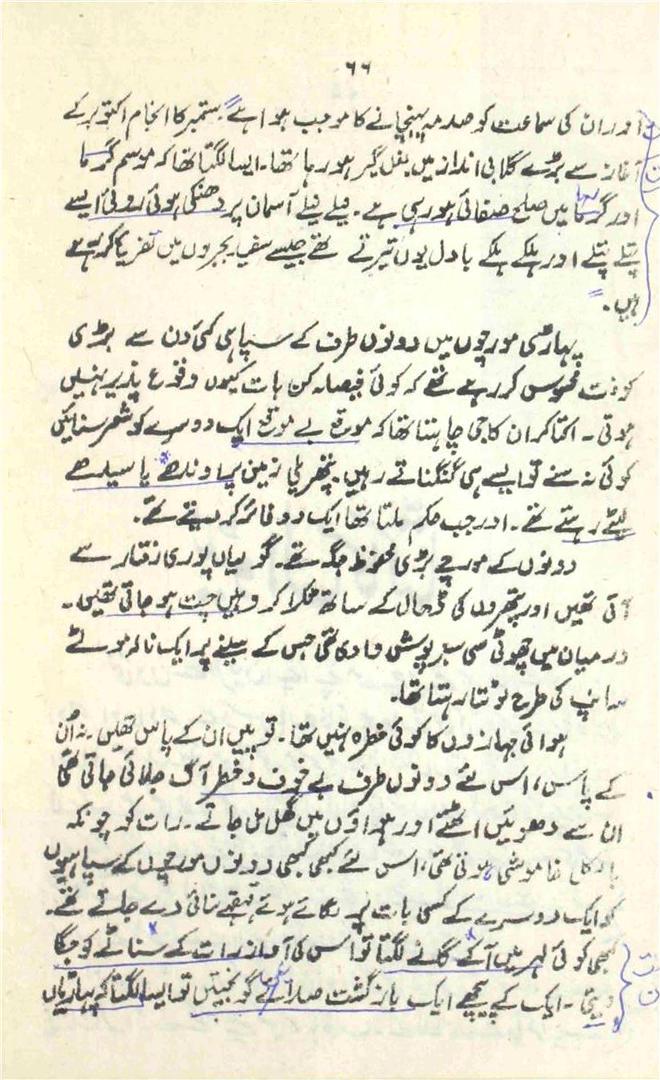 ۶۶
اور ان کی سماعت کو صدمہ پہنچانے کا موجب ہوا ہے۔ ستمبر کا انجام اکتوبر کے
آغاز سے بڑے گلابی انداز میں بغل گیر ہو رہا تھا۔ ایسا لگتا تھا کہ موسم گرما
اور سرما میں صلح صفائی ہو رہی ہے۔ نیلے نیلے آسمان پر دھنکی ہوئی روئی ایسے
پتلے پتلے اور ہلکے ہلکے بادل یوں تیرتے تھے جیسے سفید بجروں میں تفریح کر رہے
ہیں۔
پہاڑی مورچوں میں دونوں طرف کے سپاہی کئی دن سے بڑی
کوفت محسوس کر رہے تھے کہ کوئی فیصلہ کن بات کیوں وقوع پذیر نہیں
ہوتی۔ اکتا کر ان کا جی چاہتا تھا کہ موقع بے موقع ایک دوسرے کو شعر سنائیں
کوئی نہ سنے تو ایسے ہی گنگناتے رہیں۔ پتھریلی زمین پر اوندھے یا سیدھے
لیٹے رہتے تھے۔ اور جب حکم ملتا تھا ایک دو فائر کر دیتے تھے۔
دونوں کے مورچے بڑی محفوظ جگہ تھے۔ گولیاں پوری رفتار سے
آتی تھیں اور پتھروں کی ڈھال کے ساتھ ٹکرا کر وہیں چت ہو جاتی تھیں۔
درمیان میں چھوٹی سی سبز پوش وادی تھی جس کے سینے پر ایک نالہ موٹے
سانپ کی طرح لوٹتا رہتا تھا۔
ہوائی جہازوں کا کوئی خطرہ نہیں تھا۔ توپیں ان کے پاس تھیں۔ نہ اُن
کے پاس، اس لئے دونوں طرف بے خوف و خطر آگ جلائی جاتی تھی
ان سے دھوئیں اٹھتے اور ہواؤں میں گھل مل جاتے۔ رات کو چونکہ
بالکل خاموشی ہوتی تھی، اس لئے کبھی کبھی دونوں مورچوں کے سپاہیوں
کو ایک دوسرے کے کسی بات پر لگائے ہوئے قہقہے سنائی دے جاتے تھے۔
کبھی کوئی لہر میں آ کے گانے لگتا تو اس کی آواز رات کے سناٹے کو جگا
دیتی۔ ایک کے پیچھے ایک بازگشت صدائے گونجتیں تو ایسا لگتا کہ پہاڑیاں